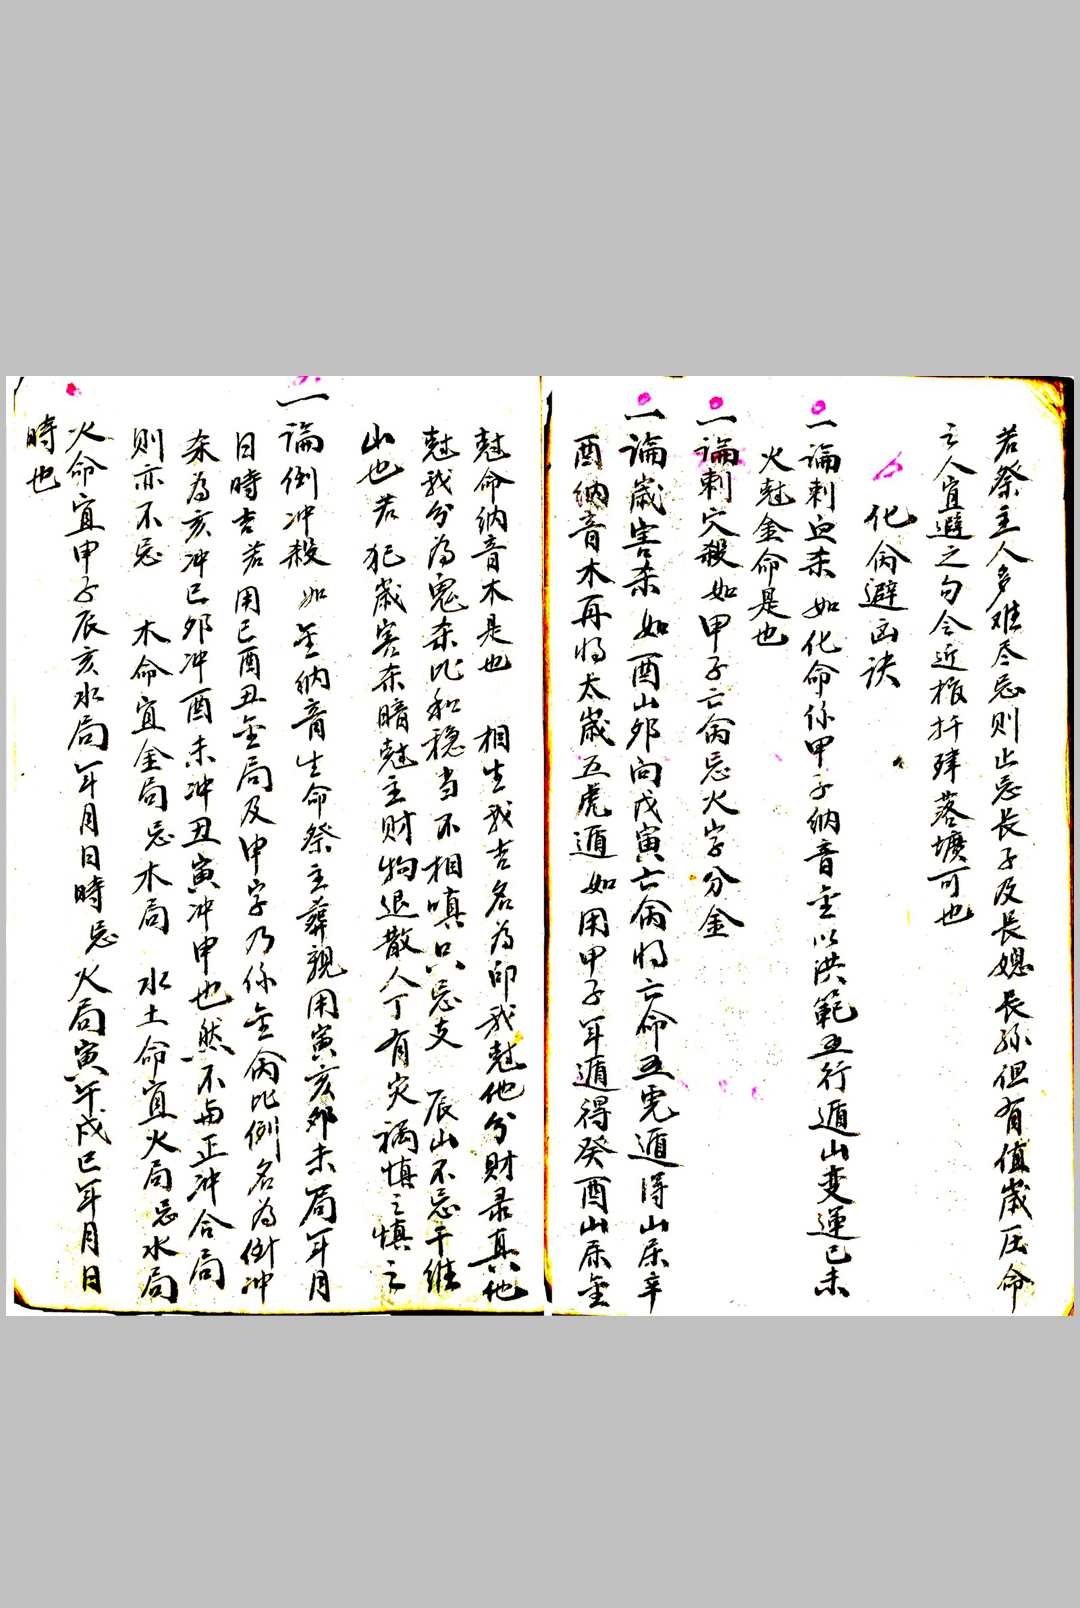 若祭主人多难尽忌則止忌長子及長媳長孫但有值歲压命
之人宜避之勿令近柩抍肂落壙可也
化命避凶诀
一論刺血杀如化命係甲子纳音金以洪範五行遁山变運己未
火尅金命是也
一論刺穴殺如甲子亡命忌火字分金
一論歲害杀如酉山夘向戊寅亡命将亡命五虎遁得山家辛
酉纳音木再将太歲五虎遁如用甲子年遁得癸酉山家金
尅命纳音木是也 相生我吉名为印我尅他兮財录真他
尅我兮為鬼杀比和稳当不相嗔只忌支 辰山不忌干维
山也 若犯歲害杀暗尅主財物退散人丁有灾祸慎之慎之
一論倒冲殺如金纳音生命祭主葬親用寅亥夘未局年月
日時吉若用巳酉丑金局及申字乃係金命比例名為倒冲
杀为亥冲巳夘冲酉未冲丑寅冲申也然不与正冲合局
則亦不忌 木命宜金局忌木局 水土命宜火局忌水局
火命宜申子辰亥水局年月日時忌火局寅午戌巳年月日
時也